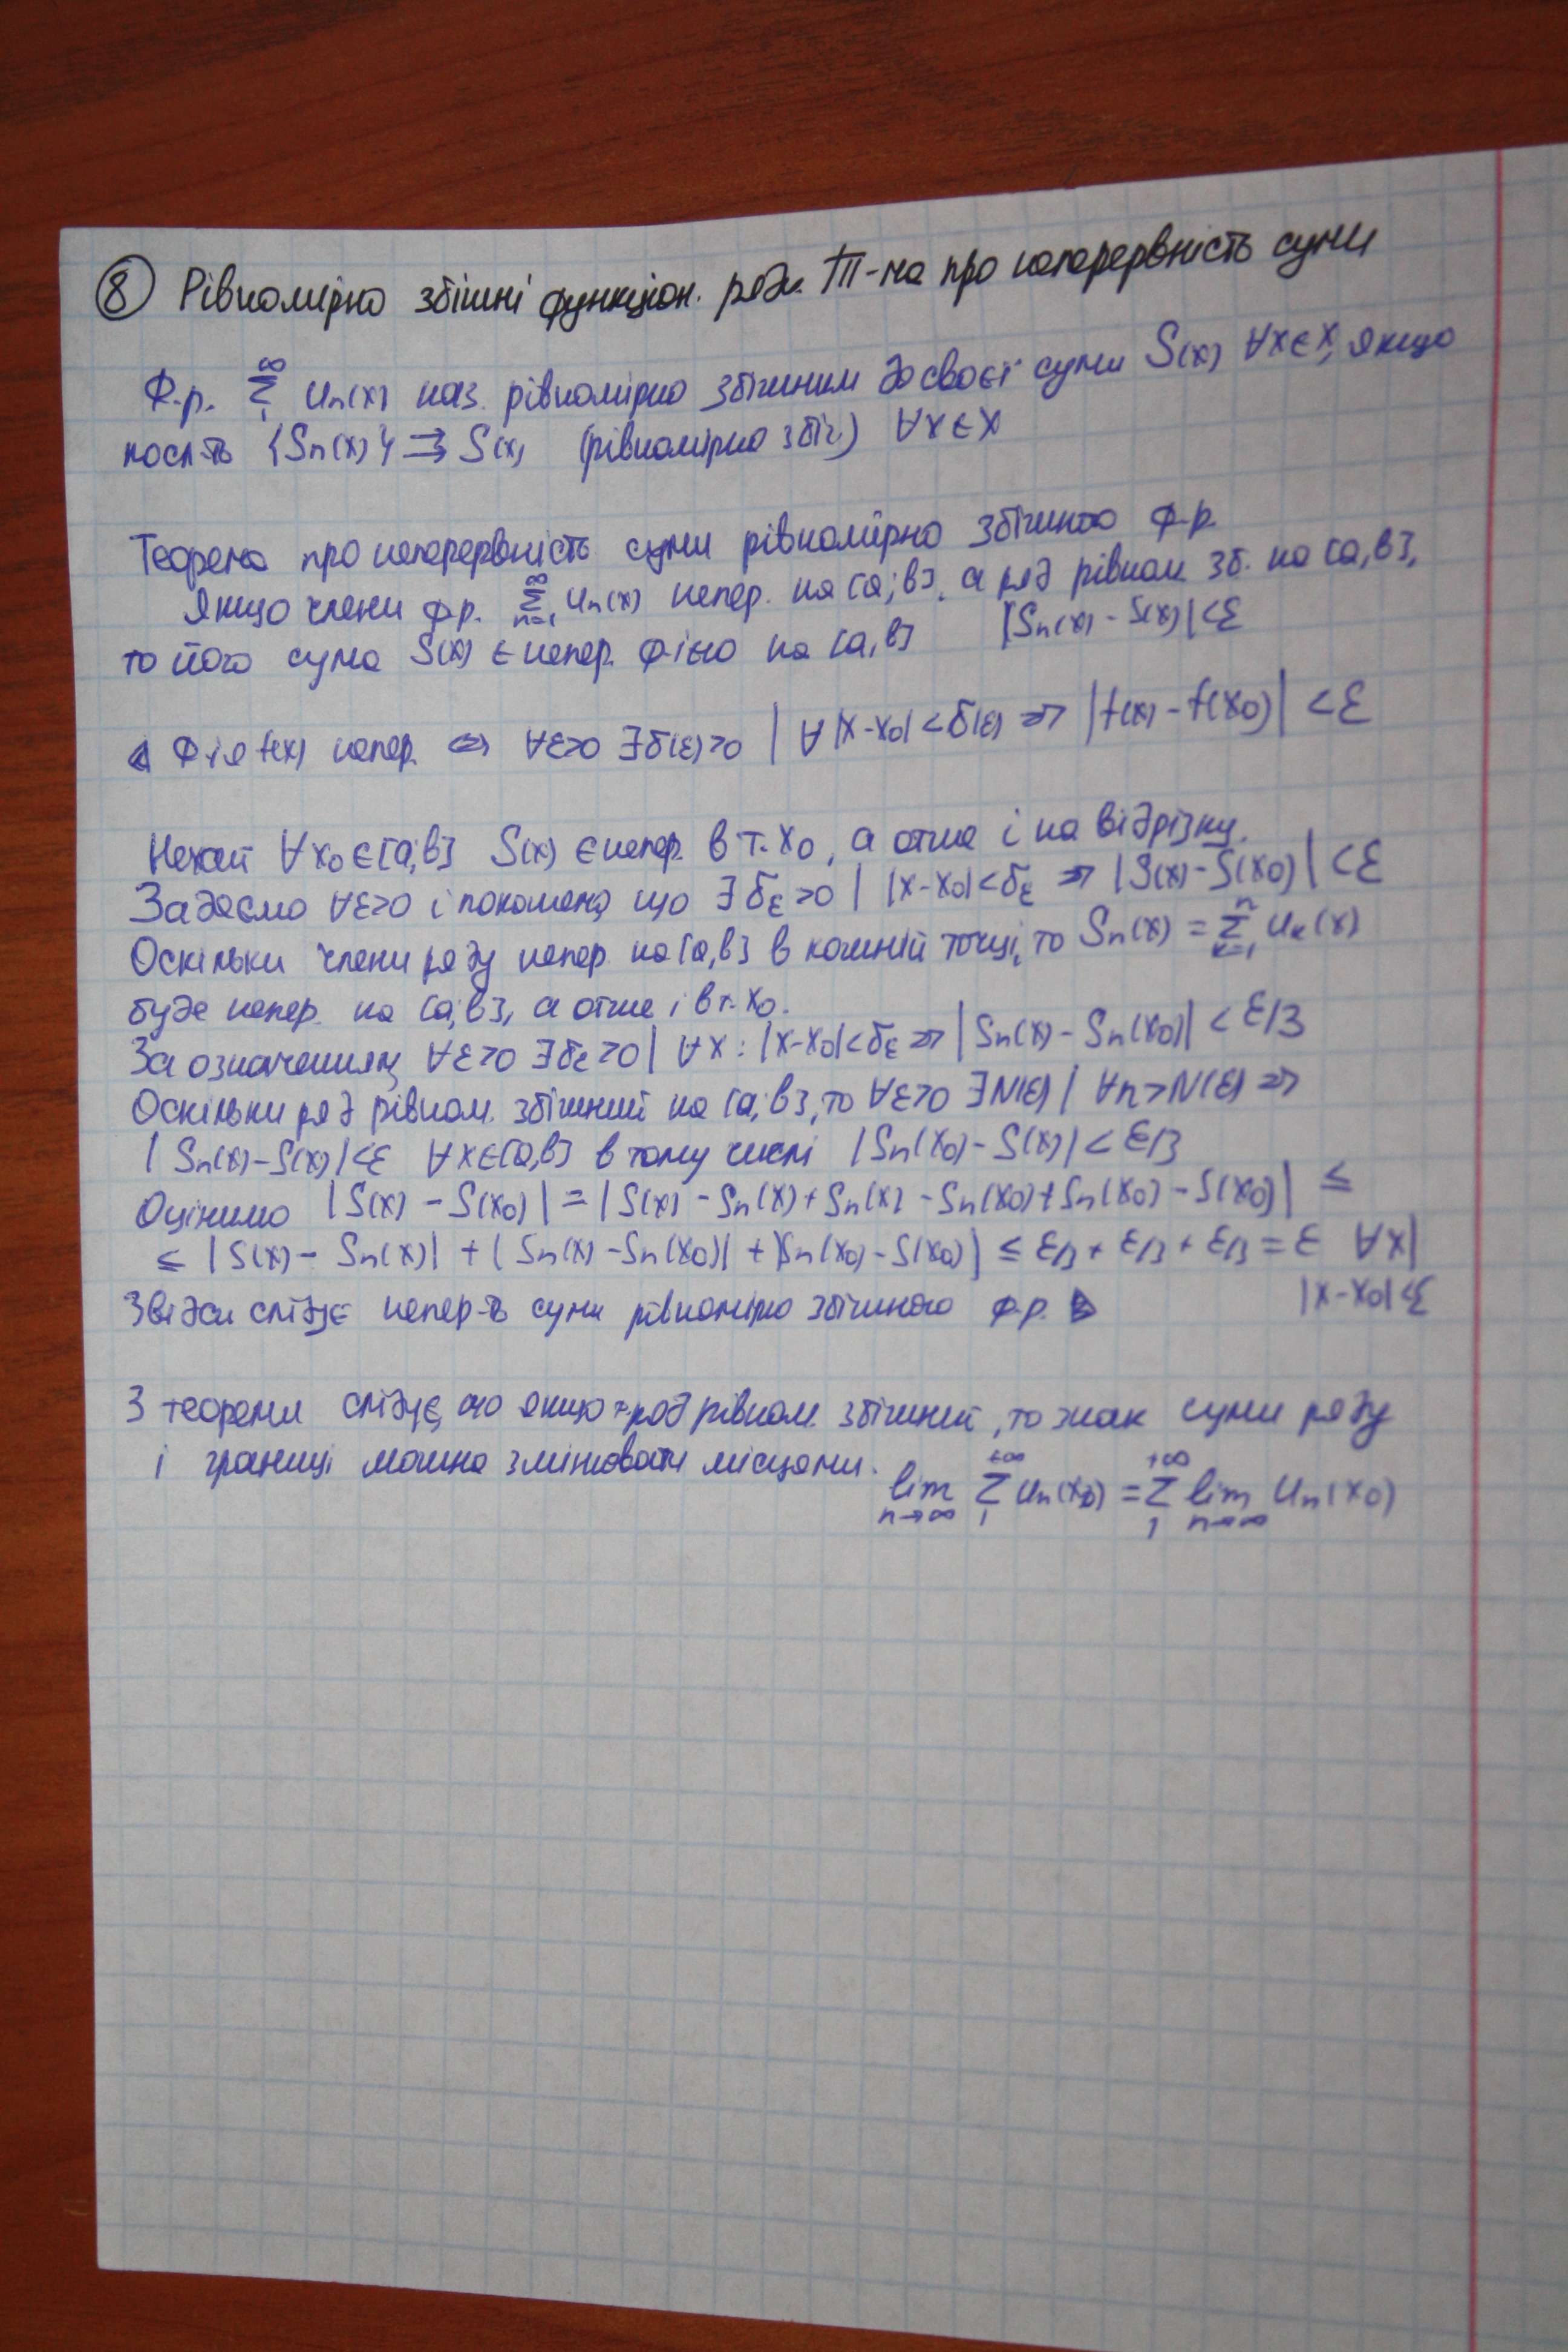 ⑧ Рівномірно збіжні функціон. ряди. Т-ма про неперервність суми
Ф.р. ∞ Σ 1 Un(x) наз. рівномірно збіжним до своєї суми S(x) ∀x∈X, якщо
посл-ть {Sn(x)} ⇉ S(x) (рівномірно збіг.) ∀x∈X
Теорема про неперервність суми рівномірно збіжного ф.р.
Якщо члени ф.р. ∞ Σ n=1 Un(x) непер. на [a;b], а ряд рівном. зб. на [a,b],
то його сума S(x) є непер. ф-ією на [a,b] |Sn(x) - S(x)|<ε
◁ Ф-ія f(x) непер. ⇔ ∀ε>0 ∃δ(ε)>0 | ∀|x-x0|<δ(ε) ⇒ |f(x) - f(x0)| < ε
Нехай ∀x0∈[a;b] S(x) є непер. в т. x0, а отже і на відрізку.
Задаємо ∀ε>0 і покажемо, що ∃δε>0 | |x-x0|<δε ⇒ |S(x) - S(x0)| < ε
Оскільки члени ряду непер. на [a,b] в кожній точці, то Sn(x) = n Σ k=1 Uk(x)
буде непер. на [a;b], а отже і в т. x0.
За означенням, ∀ε>0 ∃δε>0 | ∀x: |x-x0|<δε ⇒ |Sn(x) - Sn(x0)| < ε/3
Оскільки ряд рівном. збіжний на [a;b], то ∀ε>0 ∃N(ε) | ∀n>N(ε) ⇒
|Sn(x) - S(x)|<ε ∀x∈[a,b] в тому числі |Sn(x0) - S(x)| < ε/3
Оцінимо |S(x) - S(x0)| = |S(x) - Sn(x) + Sn(x) - Sn(x0) + Sn(x0) - S(x0)| ≤
≤ |S(x) - Sn(x)| + |Sn(x) - Sn(x0)| + |Sn(x0) - S(x0)| ≤ ε/3 + ε/3 + ε/3 = ε ∀x|
|x-x0|<ε
Звідси слідує непер-ть суми рівномірно збіжного ф.р. ▷
З теореми слідує, що якщо ряд рівном. збіжний, то знак суми ряду
і границі можна змінювати місцями.
lim n→∞ +∞ Σ 1 Un(x0) = +∞ Σ 1 lim n→∞ Un(x0)